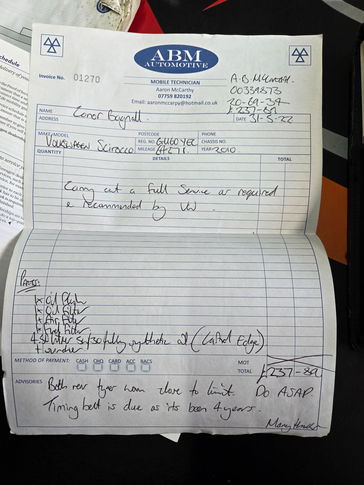 schedule
ABM
AUTOMOTIVE
Invoice No. 01270
MOBILE TECHNICIAN
Aaron McCarthy
07759 820192
Email: aaronmccarpy@hotmail.co.uk
£237-89
NAME Conor Bagnall
ADDRESS
DATE 31-5-22
MAKE/MODEL Volkswagen Scirocco
POSTCODE
REG. NO
MILEAGE
PHONE
CHASSIS NO.
YEAR 2010
QUANTITY DETAILS TOTAL
Carry out a full Service as required
& recommended by VW
Parts:
1x Oil Filter
1x Air Filter
1x Fuel Filter
fully synthetic oil (Castrol Edge)
+ sundries
METHOD OF PAYMENT: CASH CHQ CARD ACC BACS
MOT
TOTAL £237-89
ADVISORIES Both rev tyres worn close to limit. Do ASAP.
Timing belt is due as its been 4 years.